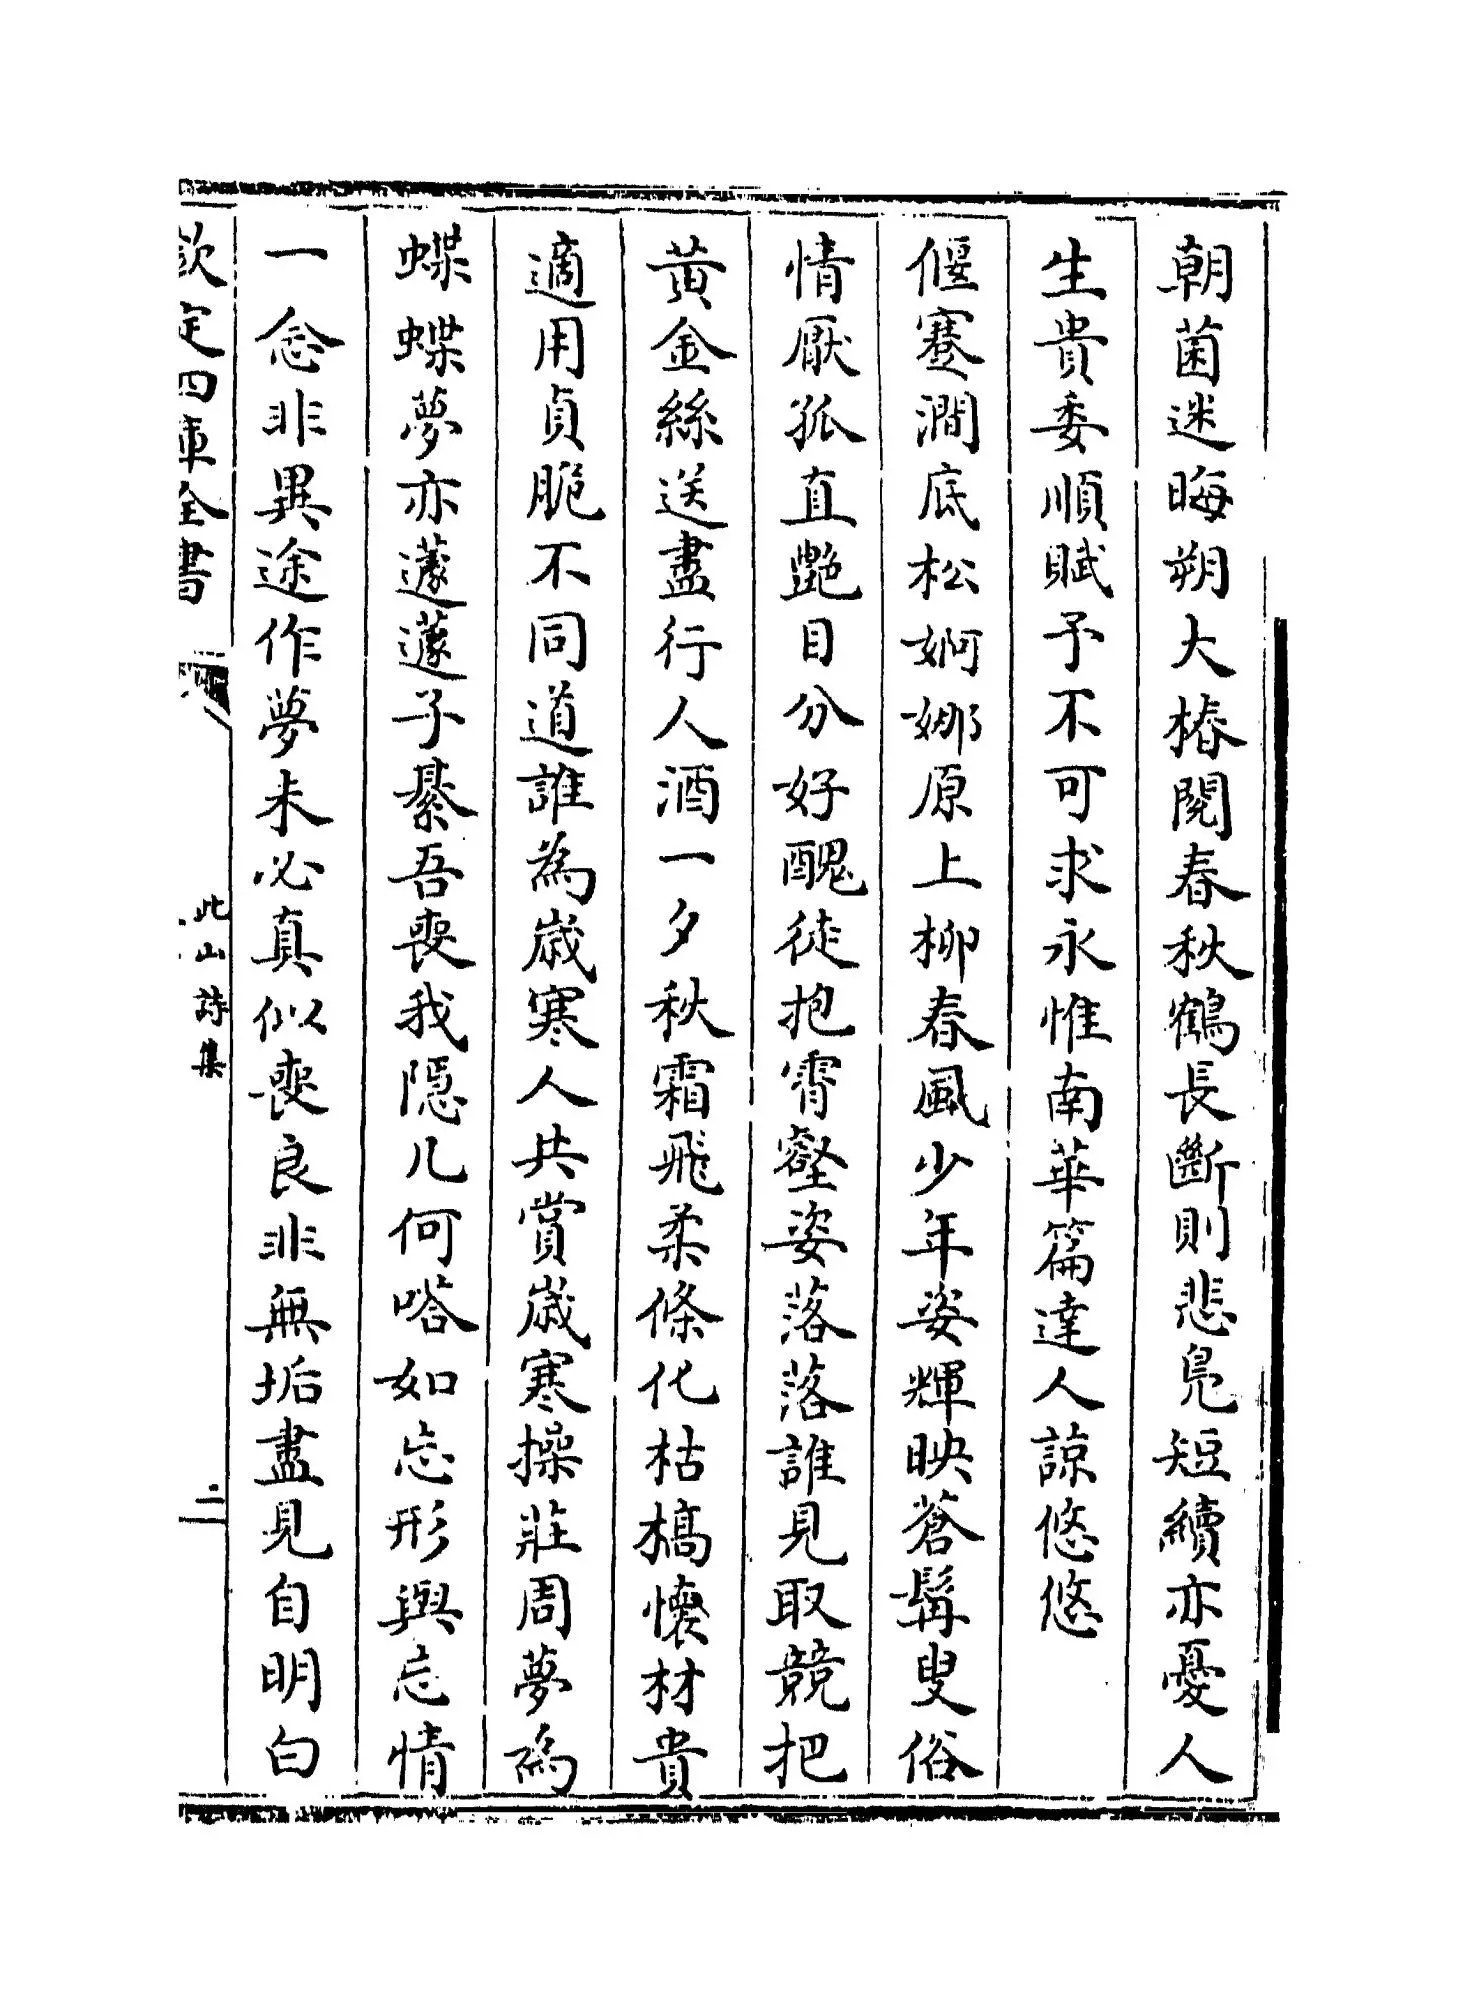 朝菌迷晦朔大椿閱春秋鶴長斷則悲鳬短續亦憂人
生貴委順賦予不可求永惟南華篇達人諒悠悠
偃蹇澗底松婀娜原上柳春風少年姿輝映蒼髯叟俗
情厭孤直艷目分好醜徒抱霄壑姿落落誰見取競把
黄金絲送盡行人酒一夕秋霜飛柔條化枯槁懷材貴
適用貞脆不同道誰為歲寒人共賞歲寒操莊周夢為
蝶蝶夢亦蘧蘧子綦吾喪我隠几何嗒如忘形與忘情
一念非異途作夢未必真似喪良非無垢盡見自明白
欽定四庫全書
此山詩集
二